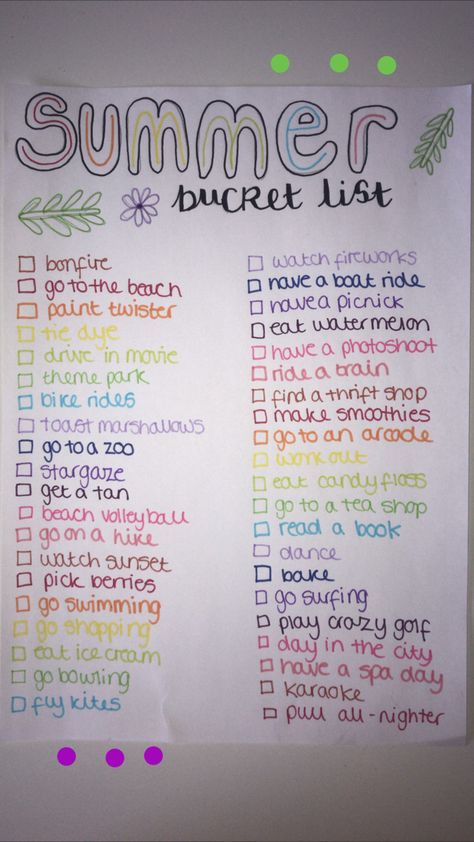 SUMMER
bucket list
bonfire
go to the beach
paint twister
tie dye
drive in movie
theme park
bike rides
toast marshallows
go to a zoo
stargaze
get a tan
beach volleyball
go on a hike
watch sunset
pick berries
go swimming
go shopping
eat ice cream
go bowling
fly kites
watch fireworks
have a boat ride
have a picnick
eat watermelon
have a photoshoot
ride a train
find a thrift shop
make smoothies
go to an arcade
work out
eat candy floss
go to a tea shop
read a book
dance
bake
go surfing
play crazy golf
day in the city
have a spa day
karaoke
pull all-nighter